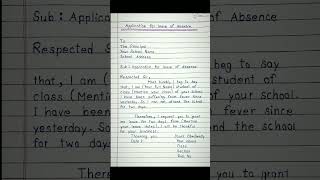 Sub : Applica
Respected S
that, I am (
class (Mentio
I have been
yesterday. So
for two days
Application for leave of Absence
To
The Principal
Your School Name
School Address
Sub : Application for leave of absence
Respected Sir,
Most humbly I beg to say
that, I am (Your full Name) student of
class (Mention your class) of your school.
I have been suffering from fever since
yesterday. So I can not attend the school
for two days.
Therefore, I request you to grant
me leave for two days from (Mention
your leave dates). I will be thankful
for your kindness.
Thanking you Yours Obediently
Date : Your Name
Class
Section
Roll No
of Absence
beg to say
student of
your school.
fever since
the school